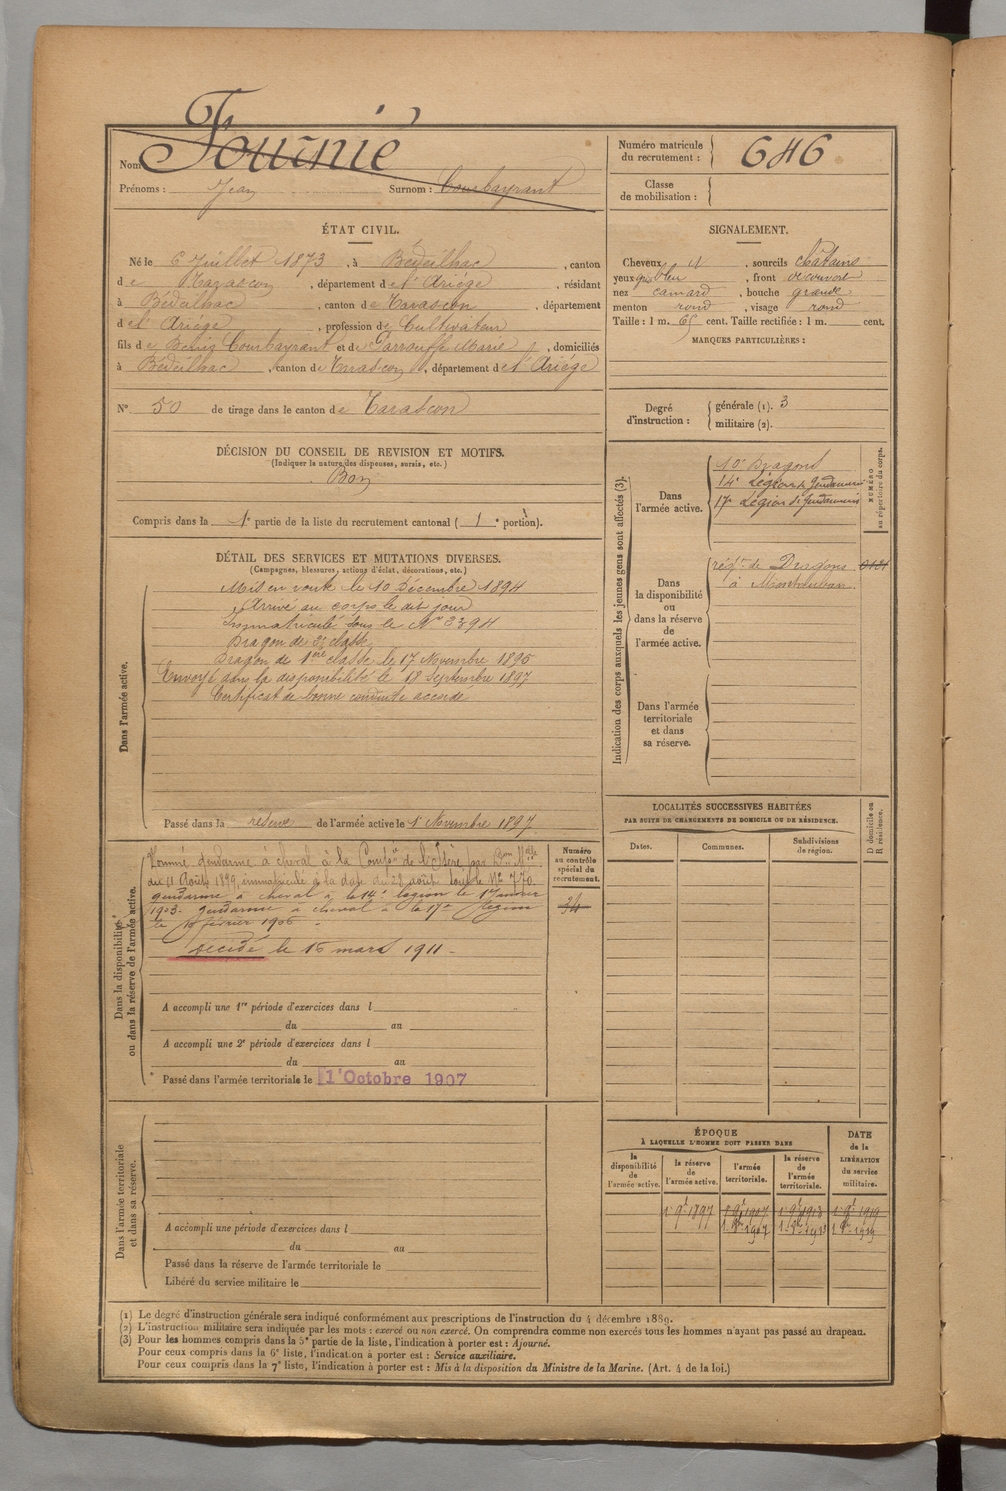 Nom Fournié
Prénoms : Jean Surnom : Courbayrant
Numéro matricule du recrutement : 646
Classe de mobilisation :
ÉTAT CIVIL.
Né le 6 Juillet 1873, à Bédeilhac, canton
de Tarascon, département de l'Ariége, résidant
à Bédeilhac, canton de Tarascon, département
de l'Ariége, profession de Cultivateur
fils de Courbayrant et de Marie, domiciliés
à Bédeilhac, canton de Tarascon, département de l'Ariége
N° 50 de tirage dans le canton de Tarascon
SIGNALEMENT.
Cheveux, sourcils châtains
yeux gris bleu, front découvert
nez camard, bouche grande
menton rond, visage rond
Taille : 1 m. 65 cent. Taille rectifiée : 1 m. cent.
MARQUES PARTICULIÈRES :
Degré d'instruction : générale (1). 3
militaire (2).
DÉCISION DU CONSEIL DE REVISION ET MOTIFS.
(Indiquer la nature des dispenses, sursis, etc.)
Bon
Compris dans la 1e partie de la liste du recrutement cantonal (1e portion).
DÉTAIL DES SERVICES ET MUTATIONS DIVERSES.
(Campagnes, blessures, actions d'éclat, décorations, etc.)
Dans l'armée active.
Mis en route le 10 Décembre 1894
Arrivé au corps le dit jour
Immatriculé sous le No 3394
Dragon de 2e classe
Dragon de 1ère classe le 17 Novembre 1895
Envoyé dans la disponibilité le 18 Septembre 1897
Certificat de bonne conduite accordé
Passé dans la réserve de l'armée active le 1 Novembre 1897
Dans la disponibilité ou dans la réserve de l'armée active.
Nommé gendarme à cheval à la Compie de l'Isère par Don Mlle
du 11 Août 1899, immatriculé à la date du 22 août sous le No 770.
gendarme à cheval à la 14e legion le 1er Janvier
1903. gendarme à cheval à la 17e légion
le février 1906
Décédé le 15 mars 1911.
A accompli une 1re période d'exercices dans l
du au
A accompli une 2e période d'exercices dans l
du au
Passé dans l'armée territoriale le 1er Octobre 1907
Numéro au contrôle spécial du recrutement.
Dans l'armée territoriale et dans sa réserve.
A accompli une période d'exercices dans l
du au
Passé dans la réserve de l'armée territoriale le
Libéré du service militaire le
Indication des corps auxquels les jeunes gens sont affectés (3).
Dans l'armée active.
10e Dragons
14e Légion de Gendarmerie
17e Légion de Gendarmerie
NUMÉRO au répertoire du corps.
Dans la disponibilité ou dans la réserve de l'armée active.
régt de Dragons
à Montauban
Dans l'armée territoriale et dans sa réserve.
LOCALITÉS SUCCESSIVES HABITÉES
PAR SUITE DE CHANGEMENTS DE DOMICILE OU DE RÉSIDENCE.
Dates. Communes. Subdivisions de région. D domicile ou R résidence.
ÉPOQUE
À LAQUELLE L'HOMME DOIT PASSER DANS
la disponibilité de l'armée active. la réserve de l'armée active. l'armée territoriale. la réserve de l'armée territoriale. DATE de la LIBÉRATION du service militaire.
1 9bre 1897 1 9bre 1907 1 9bre 1913 1 9bre 1919
1 8bre 1907 1 8bre 1913 1 8bre 1919
(1) Le degré d'instruction générale sera indiqué conformément aux prescriptions de l'instruction du 4 décembre 1889.
(2) L'instruction militaire sera indiquée par les mots : exercé ou non exercé. On comprendra comme non exercés tous les hommes n'ayant pas passé au drapeau.
(3) Pour les hommes compris dans la 5e partie de la liste, l'indication à porter est : Ajourné.
Pour ceux compris dans la 6e liste, l'indication à porter est : Service auxiliaire.
Pour ceux compris dans la 7e liste, l'indication à porter est : Mis à la disposition du Ministre de la Marine. (Art. 4 de la loi.)